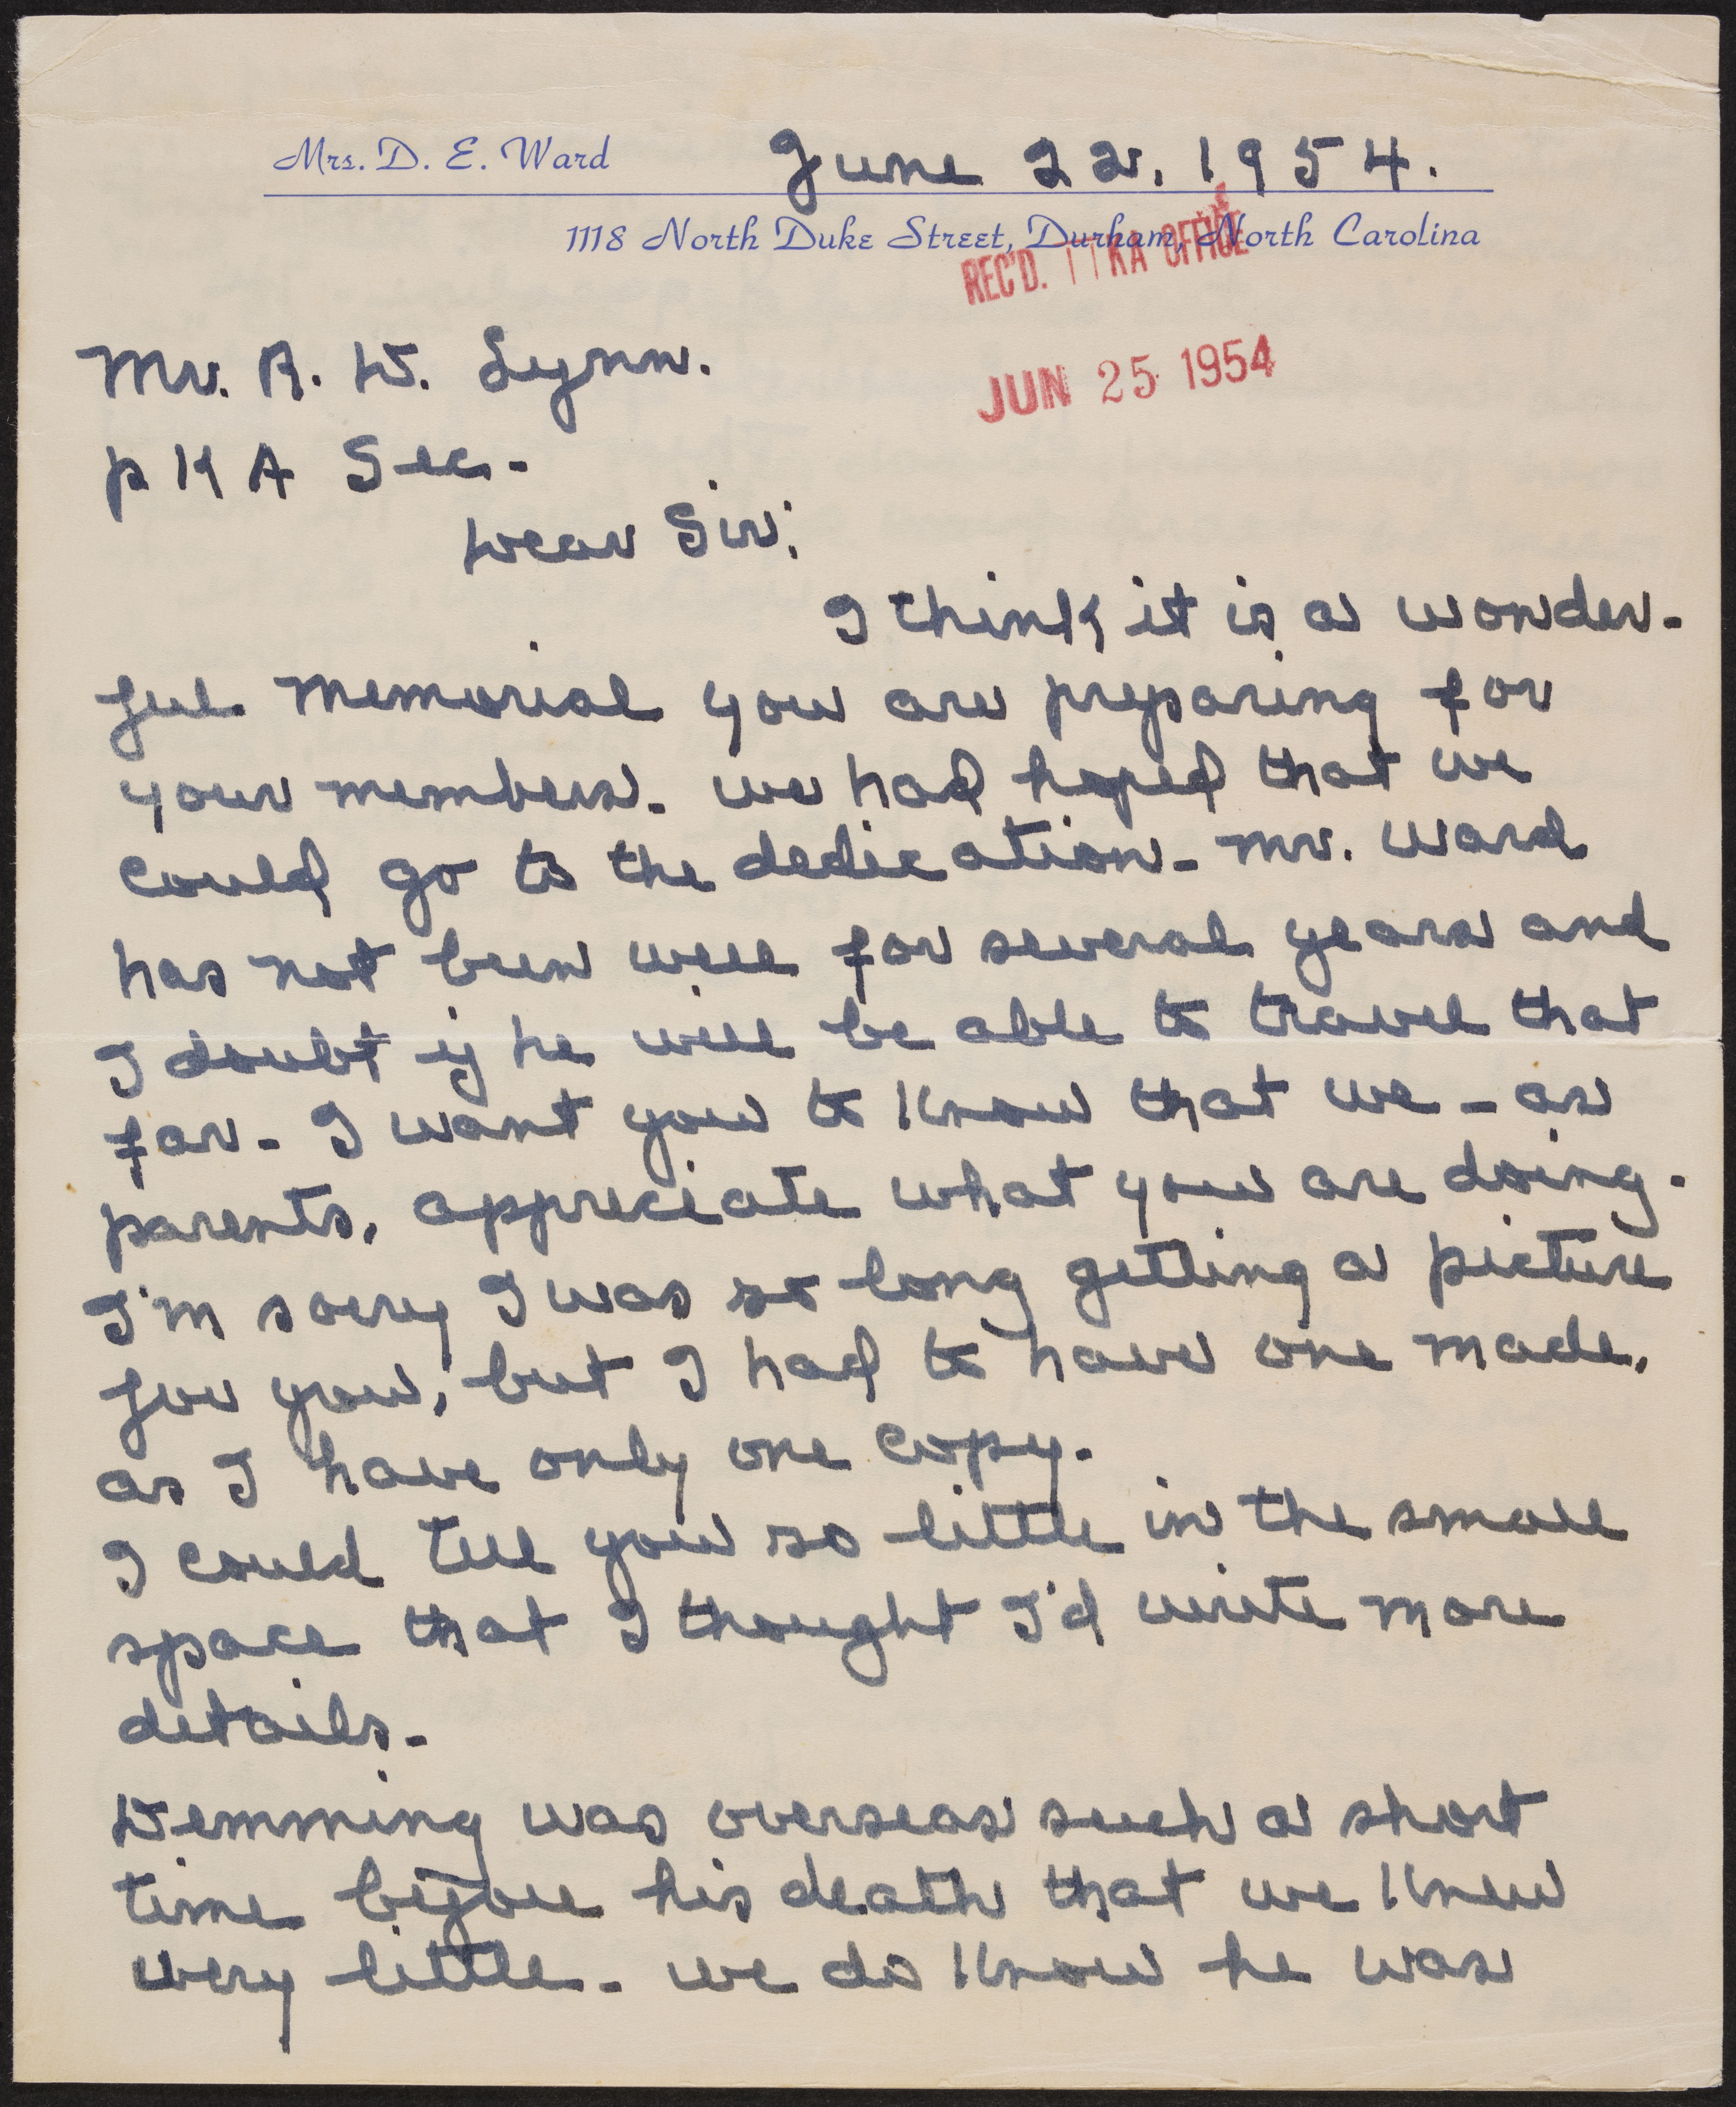 Mrs. D. E. Ward
June 22, 1954.
1118 North Duke Street, Durham, North Carolina
REC'D. ΠKA OFFICE
JUN 25 1954
Mr. R. D. Lynn.
p K A Sec.
Dear Sir:
I think it is a wonder-
ful memorial you are preparing for
your members. we had hoped that we
could go to the dedication- Mr. Ward
has not been well for several years and
I doubt if he will be able to travel that
far- I want you to know that we - as
parents, appreciate what you are doing.
I'm sorry I was so long getting a picture
for you, but I had to have one made,
as I have only one copy.
I could tell you so little in the small
space that I thought I'd write more
details.
Demming was overseas such a short
time before his death that we knew
very little. we do know he was